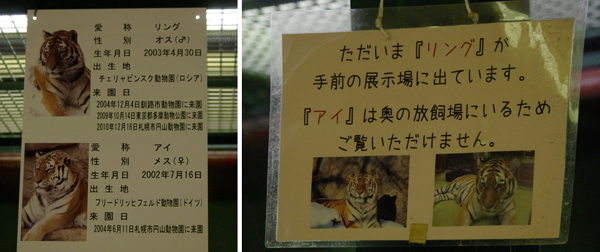 愛称 リング
性別 オス(♂)
生年月日 2003年4月30日
出生地
チェリャビンスク動物園(ロシア)
来園日
2004年12月4日釧路市動物園に来園
2009年10月14日東京都多摩動物公園に来園
2010年12月16日札幌市円山動物園に来園
愛称 アイ
性別 メス(♀)
生年月日 2002年7月16日
出生地
フリードリッヒフェルド動物園(ドイツ)
来園日
2004年6月11日札幌市円山動物園に来園
ただいま『リング』が
手前の展示場に出ています。
『アイ』は奥の放飼場にいるため
ご覧いただけません。